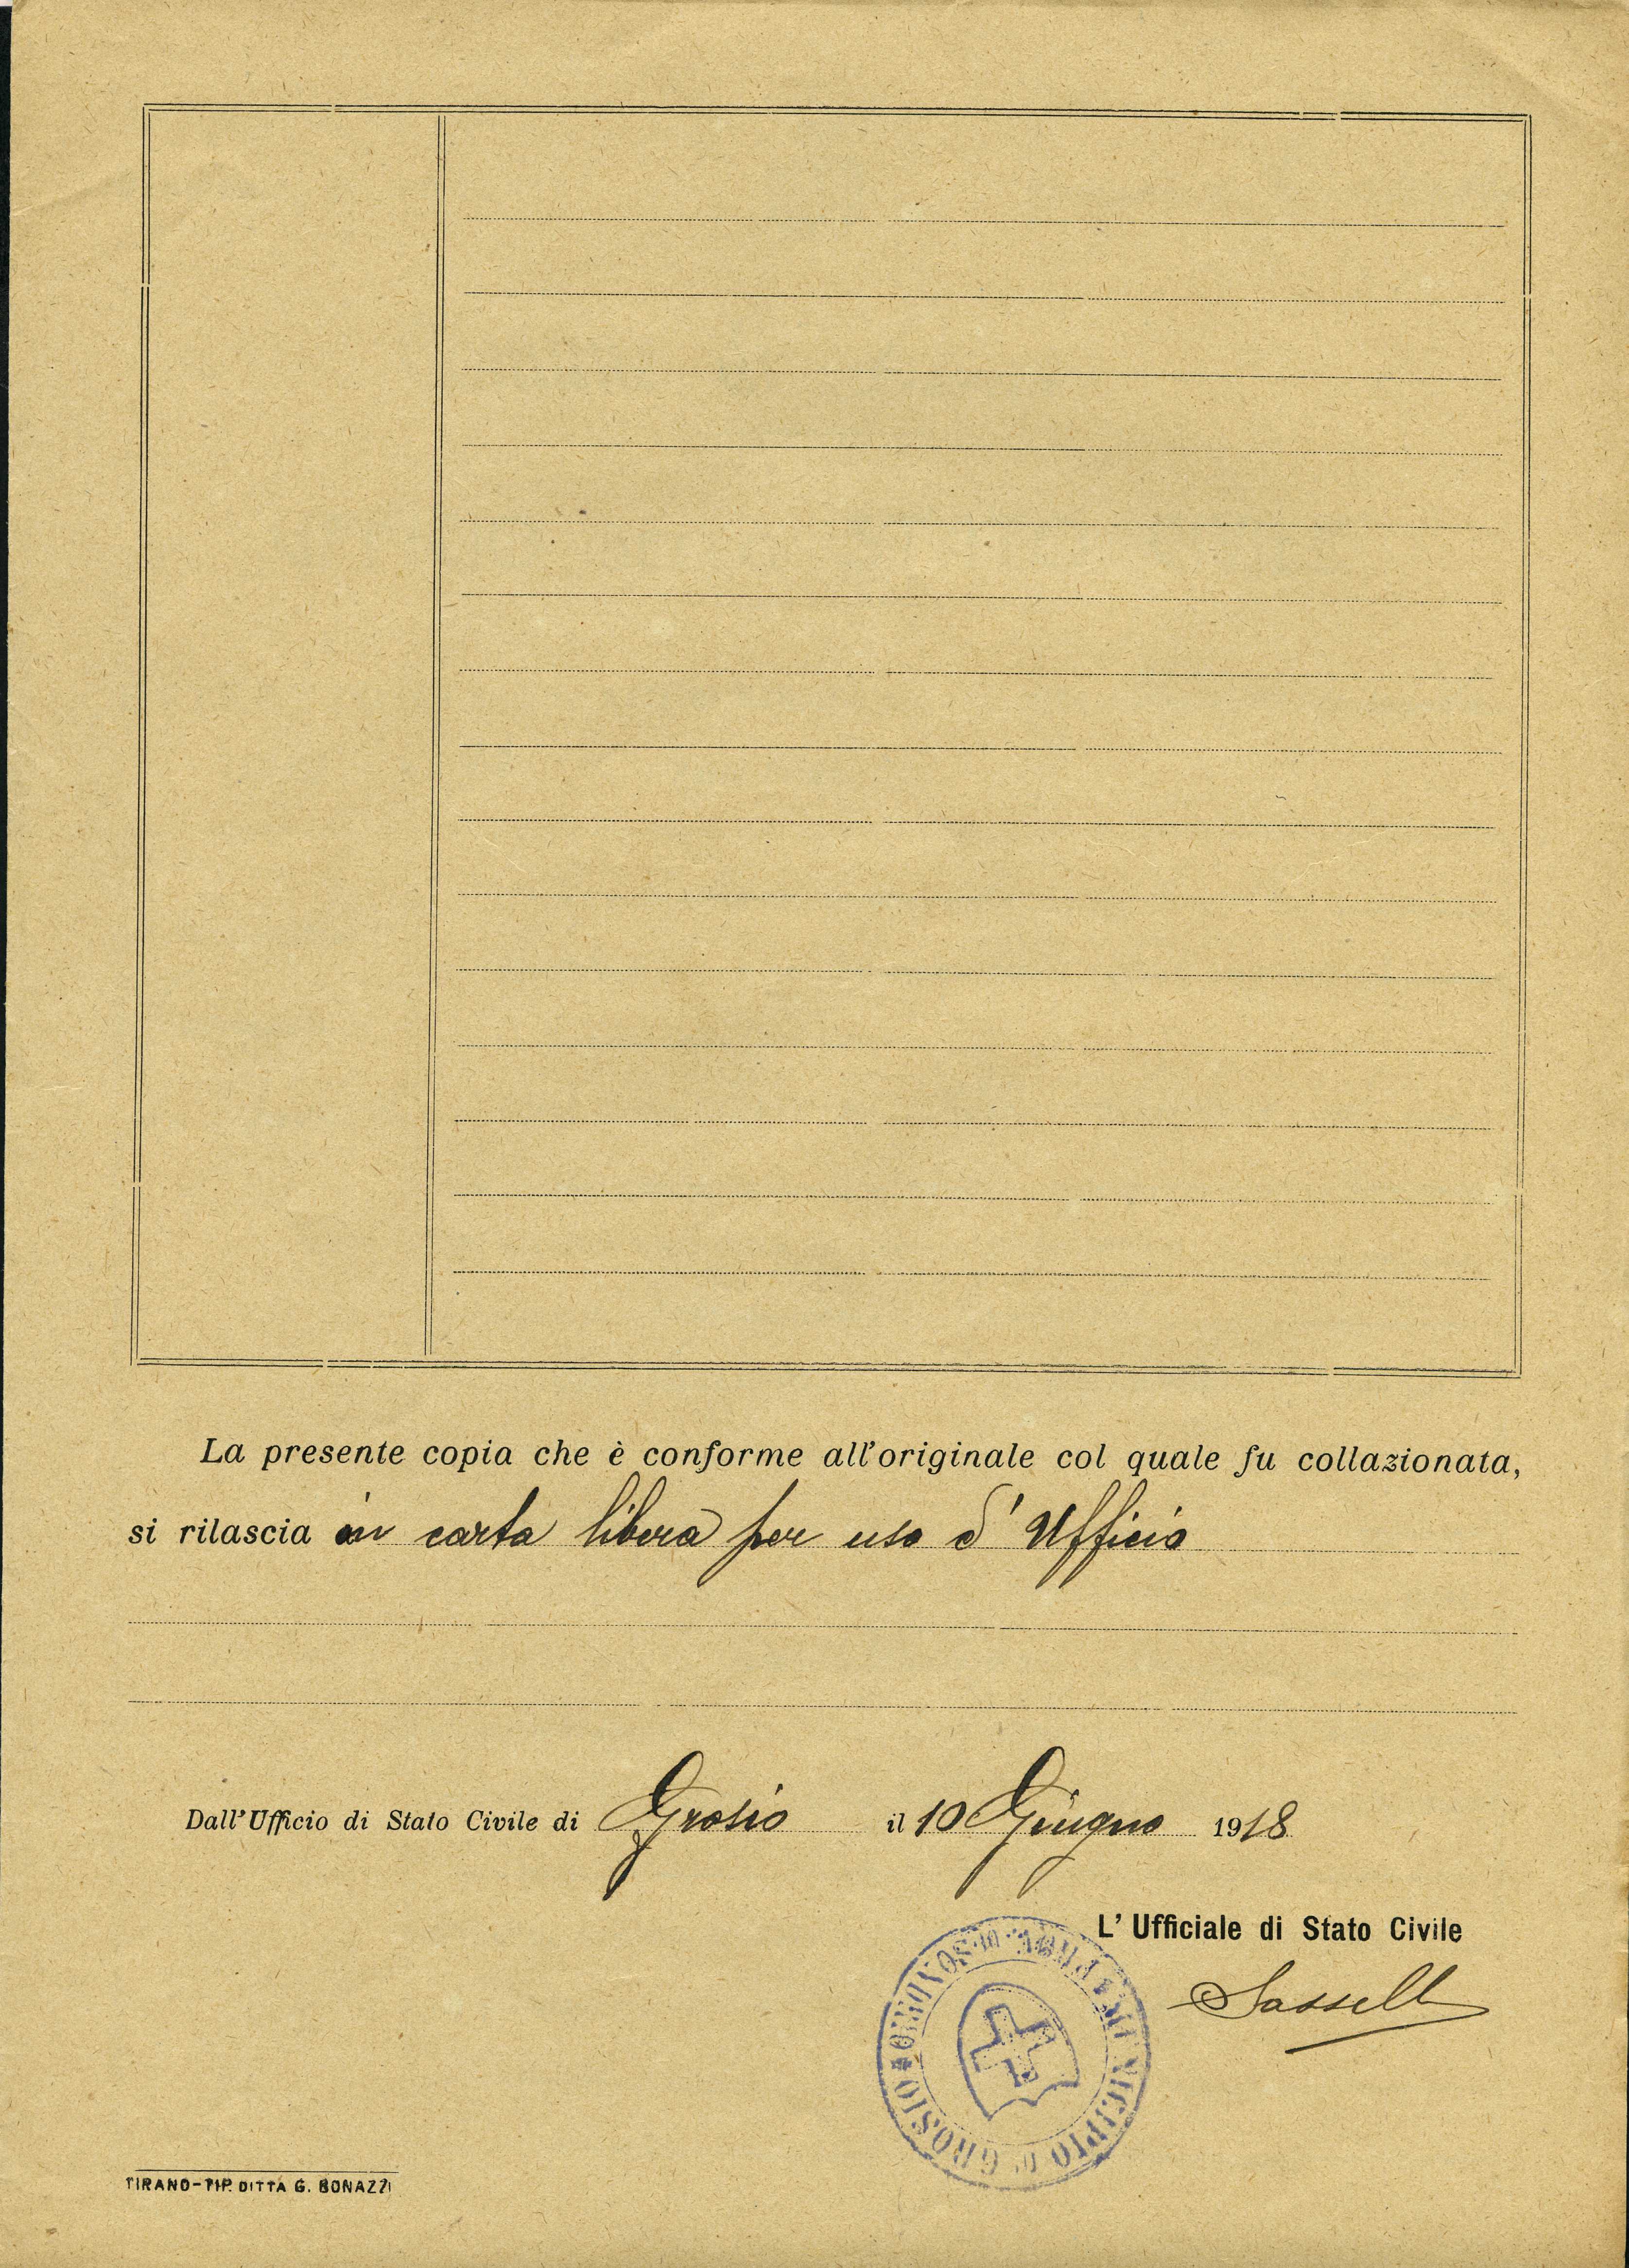 La presente copia che è conforme all'originale col quale fu collazionata,
si rilascia in carta libera per uso d'Ufficio
Dall'Ufficio di Stato Civile di Grosio il 10 Giugno 1918
L'Ufficiale di Stato Civile
MUNICIPIO DI GROSIO PROV. DI SONDRIO
TIRANO-TIP. DITTA G. BONAZZI